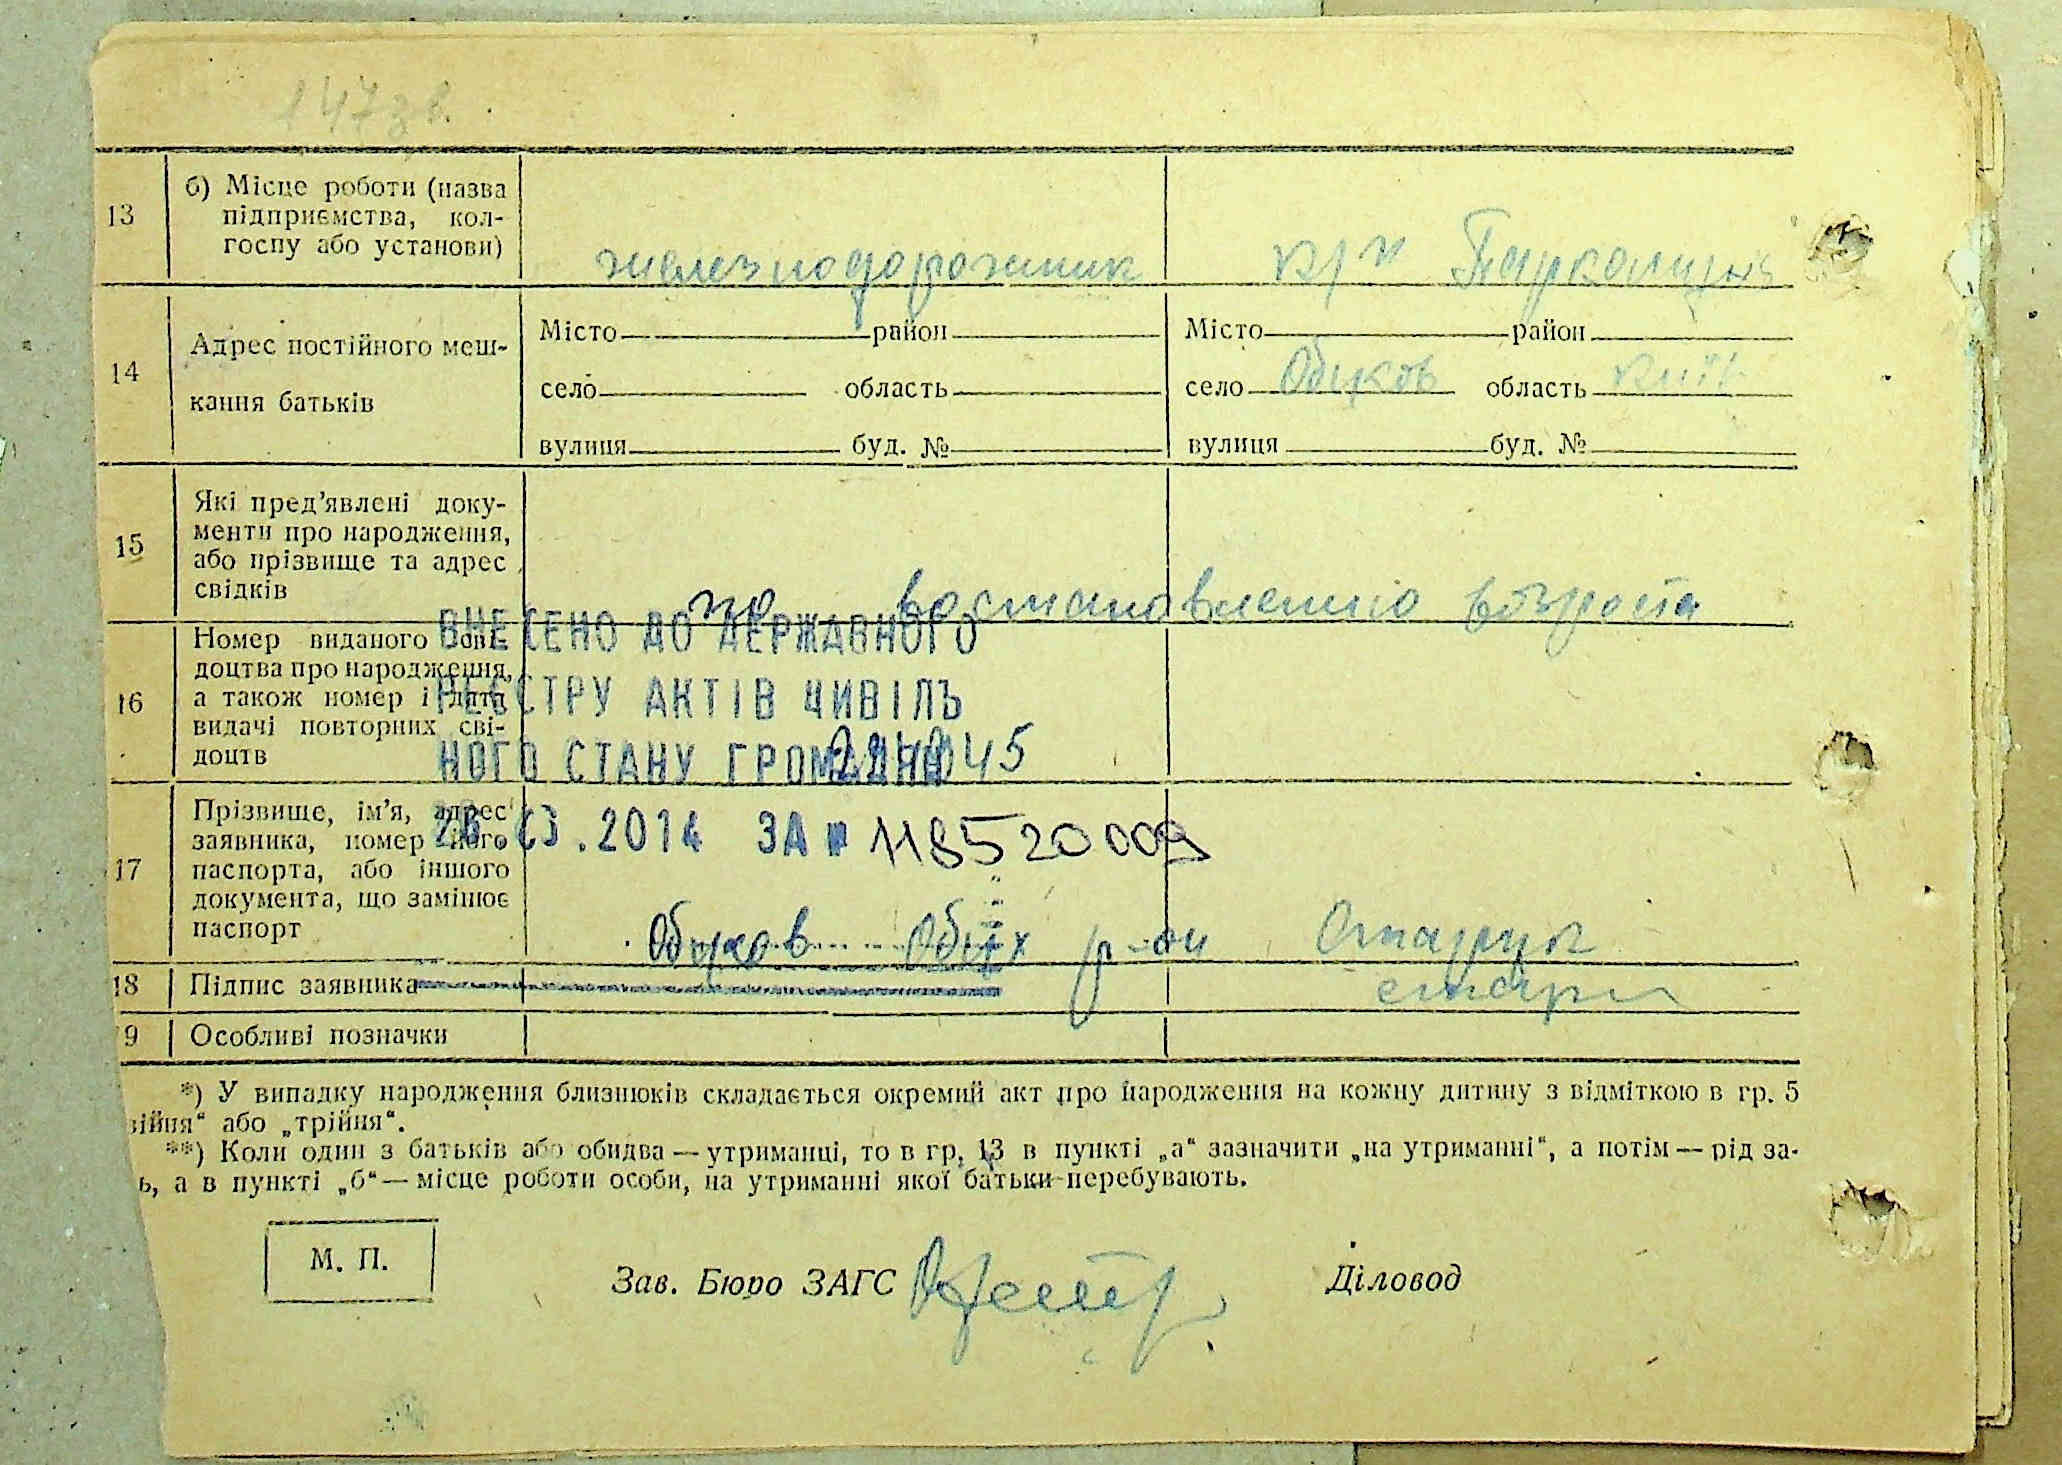 147зв.
13
б) Місце роботи (назва
підприємства, кол-
госпу або установи)
железнодорожник
к/г
14
Адрес постійного меш-
кання батьків
Місто район
село область
вулиця буд. №
Місто район
село Обухов область київ
вулиця буд. №
15
Які пред’явлені доку-
менти про народження,
або прізвище та адрес
свідків
по востановлению возроста
16
Номер виданого сві-
доцтва про народження,
а також номер і дата
видачі повторних сві-
доцтв
ВНЕСЕНО ДО ДЕРЖАВНОГО
РЕЄСТРУ АКТІВ ЦИВІЛЬ
НОГО СТАНУ ГРОМАДЯН
45
.2014 ЗА № 118520009
17
Прізвище, ім’я, адрес
заявника, номер його
паспорта, або іншого
документа, що замінює
паспорт
Обухов Обух р-он
18
Підпис заявника
9
Особливі позначки
*) У випадку народження близнюків складається окремий акт про народження на кожну дитину з відміткою в гр. 5
війня“ або „трійня“.
**) Коли один з батьків або обидва — утриманці, то в гр. 13 в пункті „а“ зазначити „на утриманні“, а потім — рід за-
ь, а в пункті „б“ — місце роботи особи, на утриманні якої батьки перебувають.
М. П.
Зав. Бюро ЗАГС
Діловод